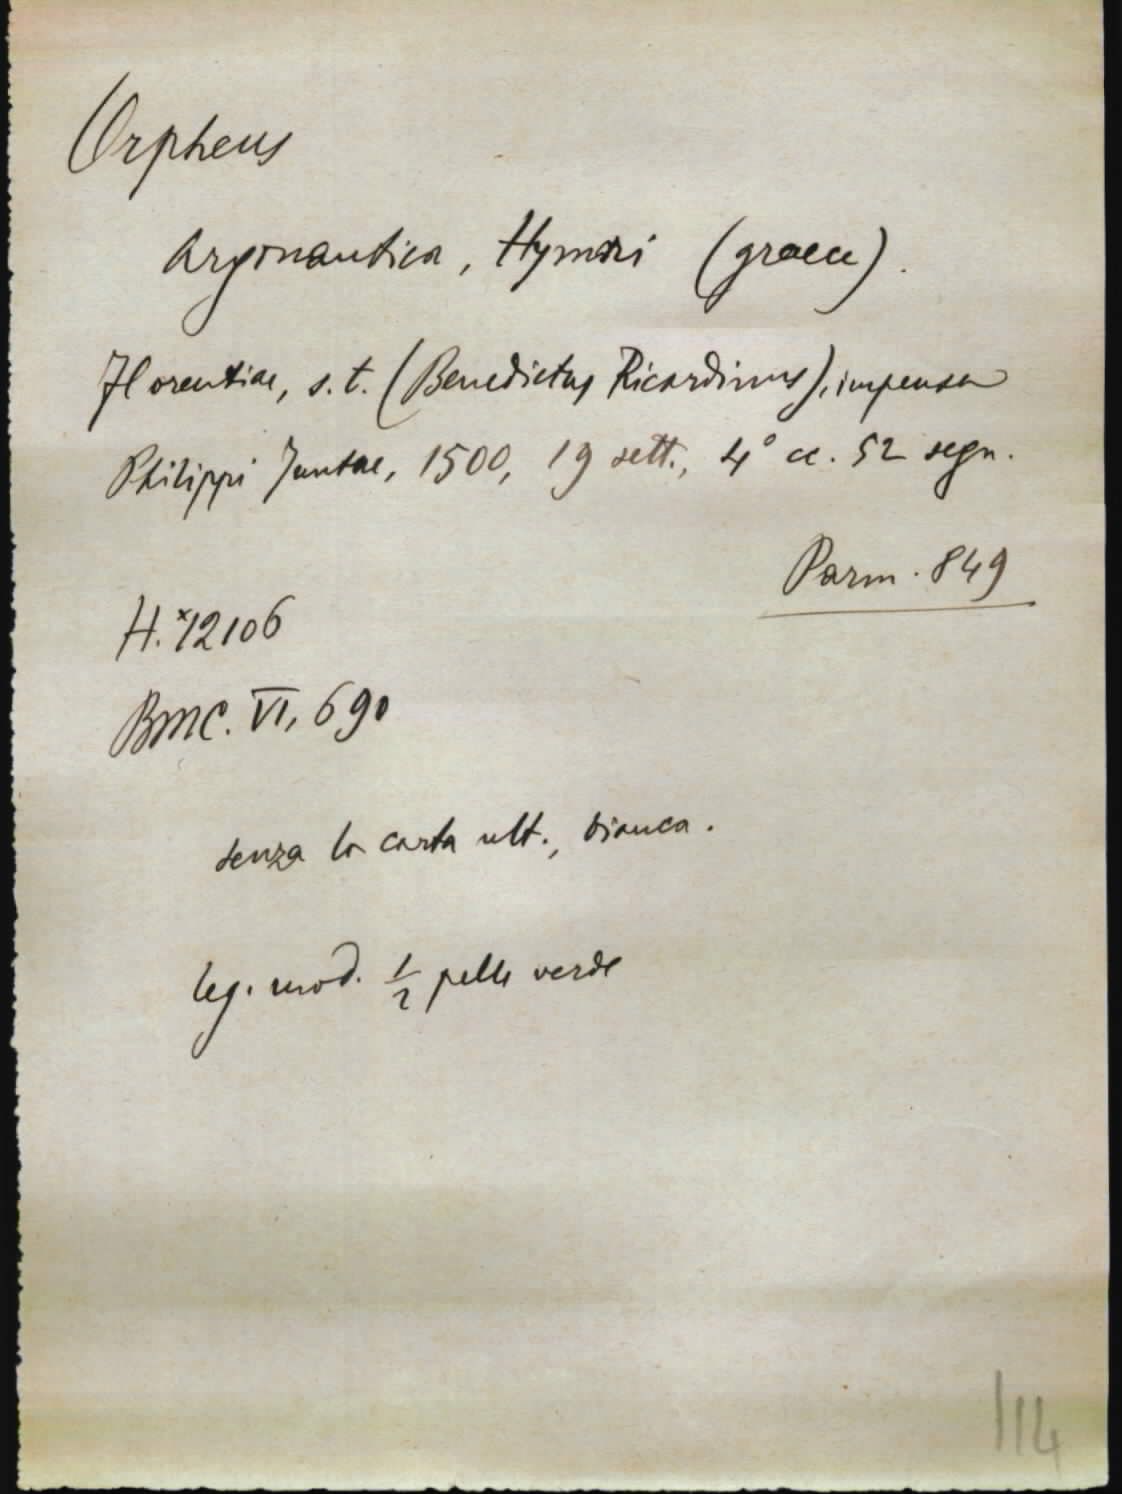 Orpheus
Argonautica, Hymni (graece).
Florentiae, s.t. (Benedictus Ricardinus), impensa
Philippi Juntae, 1500, 19 sett., 4° cc. 52 segn.
Parm. 849
H.*12106
BMC. VI, 690
senza la carta ult., bianca.
leg. mod. 1/2 pelle verde
114